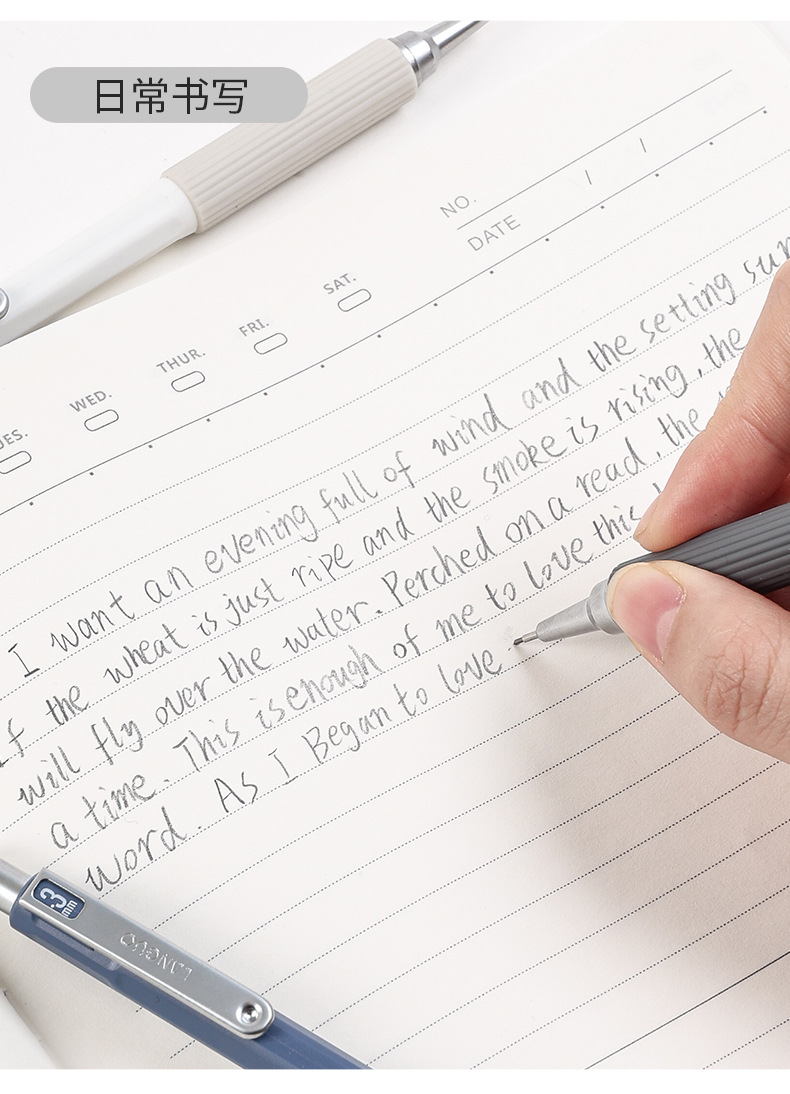 日常书写
NO.
DATE / /
WED. THUR. FRI. SAT.
I want an evening full of wind and the setting sun
If the wheat is just ripe and the smoke is rising, the
will fly over the water. Perched on a read, the
a time. This is enough of me to love this
word. As I Began to love
.3mm
LANGUO